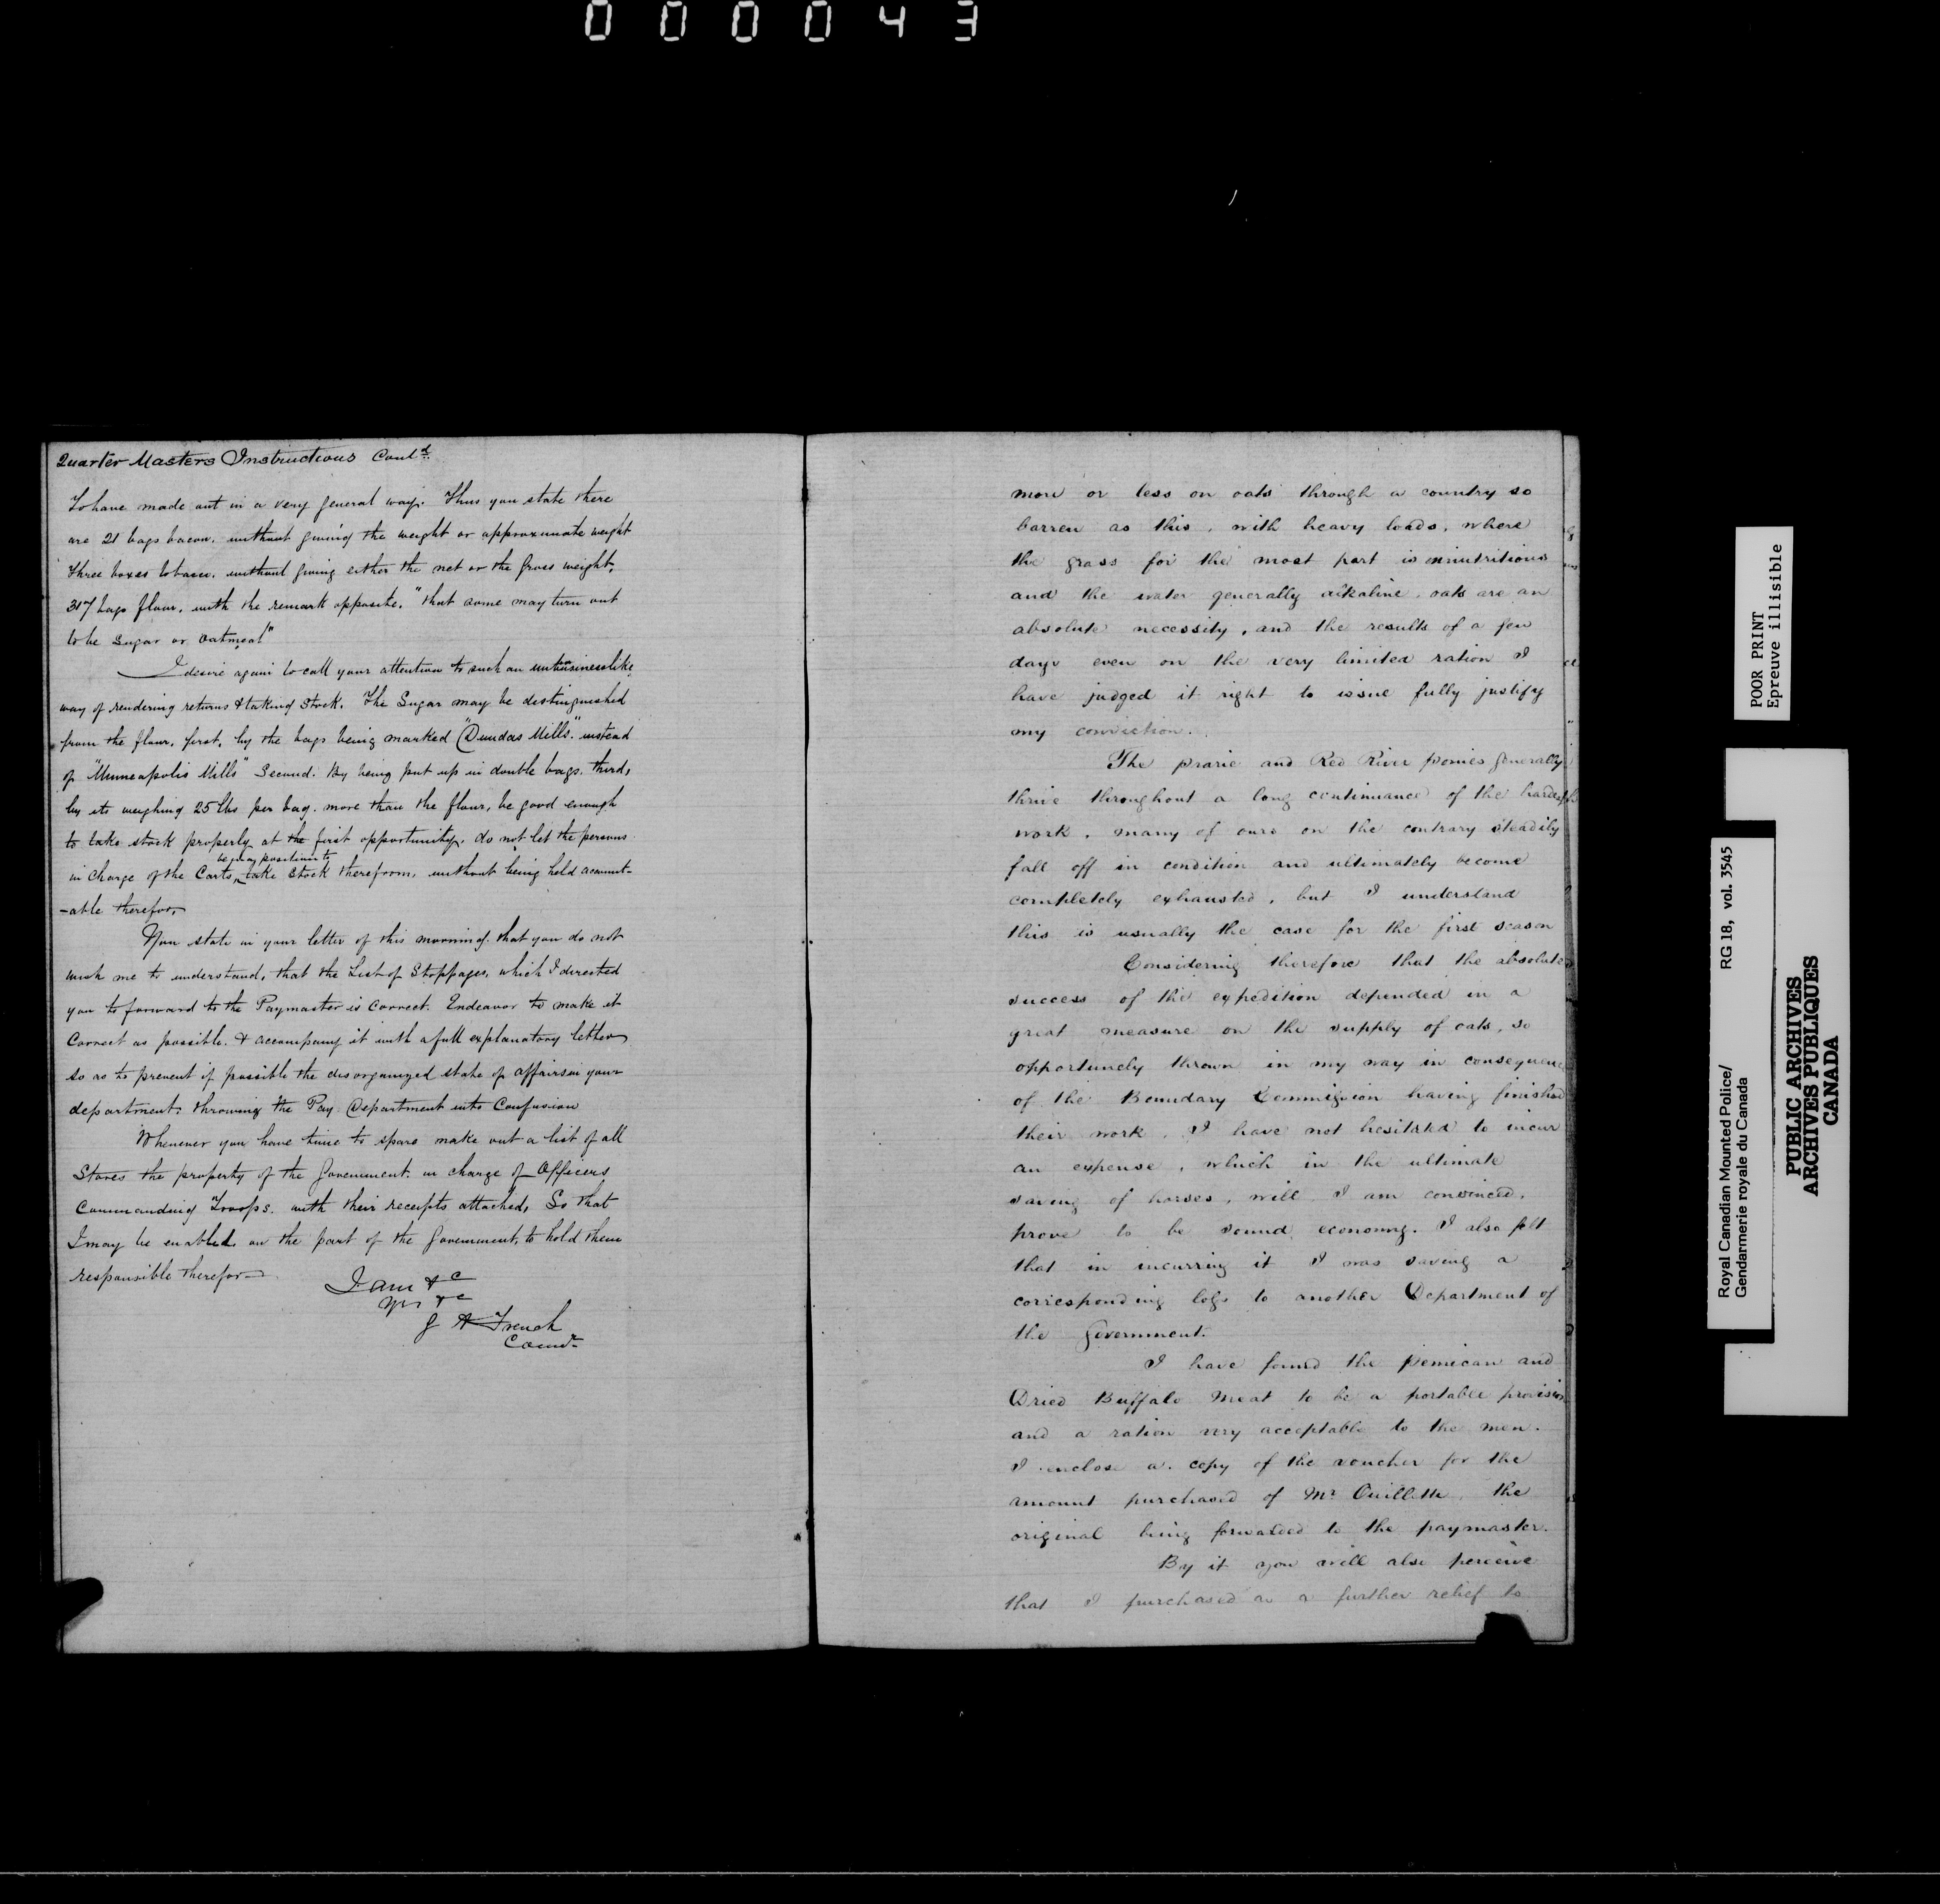 000043
Quarter Masters Instructions Cont.d
To have made out in a very general way. Thus you state there
are 21 bags bacon, without giving the weight or approximate weight
three boxes tobacco, without giving either the net or the gross weight,
317 bags flour, with the remark opposite, "that some may turn out
to be Sugar or Oatmeal"
I desire again to call your attention to such an unbusinesslike
way of rendering returns & taking Stock. The Sugar may be distinguished
from the flour, first, by the bags being marked "Dundas Mills" instead
of "Minneapolis Mills" Second. By being put up in double bags. third,
by its weighing 25 lbs per bag. more than the flour, be good enough
to take stock properly at the first opportunity, do not let the persons
in charge of the Carts, take Stock therefrom, without being held account-
-able therefor,
You state in your letter of this morning. that you do not
wish me to understand, that the List of Stoppages, which I directed
you to forward to the Paymaster is Correct. Endeavor to make it
Correct as possible. & accompany it with a full explanatory letter
so as to prevent if possible the disorganized state of affairs in your
department, throwing the Pay Department into Confusion
Whenever you have time to spare make out a list of all
Stores the property of the Government. in charge of Officers
Commanding Troops. with their receipts attached, So that
I may be enabled, on the part of the Government, to hold them
responsible therefor
I am &c
Yrs &c
G A French
Comr
more or less on oats through a country so
barren as this, with heavy loads, where
the grass for the most part is innutritious
and the water generally alkaline, oats are an
absolute necessity, and the results of a few
days even on the very limited ration I
have judged it right to issue fully justify
my conviction.
The prarie and Red River ponies generally
thrive throughout a long continuance of the hardest
work, many of ours on the contrary steadily
fall off in condition and ultimately become
completely exhausted, but I understand
this is usually the case for the first season
Considering therefore that the absolute
success of the expedition depended in a
great measure on the supply of oats, so
opportunely thrown in my way in consequence
of the Boundary Commission having finished
their work, I have not hesitated to incur
an expense, which in the ultimate
saving of horses, will I am convinced,
prove to be sound economy. I also felt
that in incurring it I was saving a
corresponding loss to another Department of
the Government.
I have found the pemican and
Dried Buffalo meat to be a portable provision
and a ration very acceptable to the men.
I enclose a copy of the voucher for the
amount purchased of Mr Ouillette, the
original being forwarded to the paymaster.
By it you will also perceive
that I purchased as a further relief to
POOR PRINT
Epreuve illisible
Royal Canadian Mounted Police/ RG 18, vol. 3545
Gendarmerie royale du Canada
PUBLIC ARCHIVES
ARCHIVES PUBLIQUES
CANADA